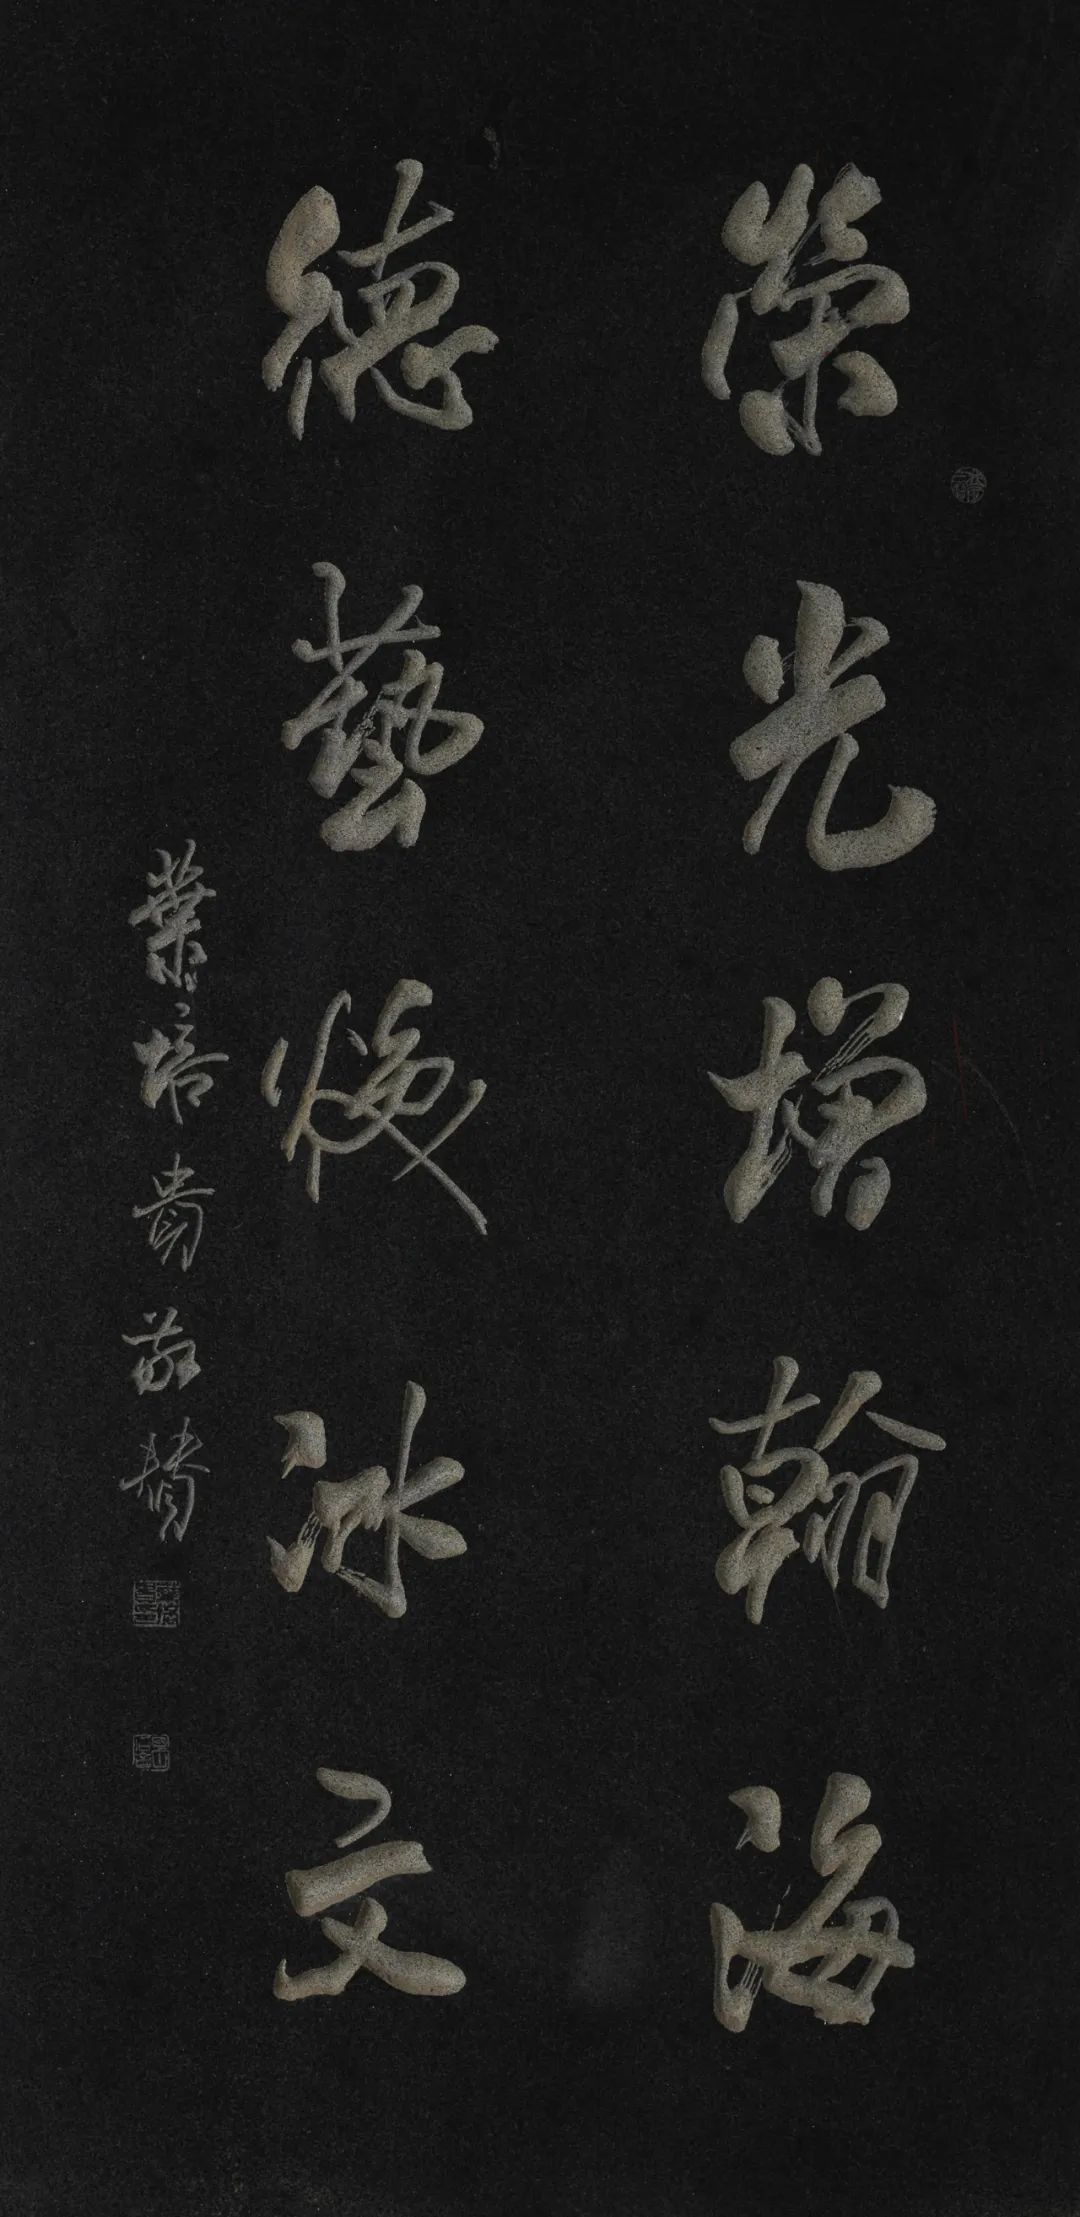 榮光增翰海
德藝煥冰文
葉培貴敬贊